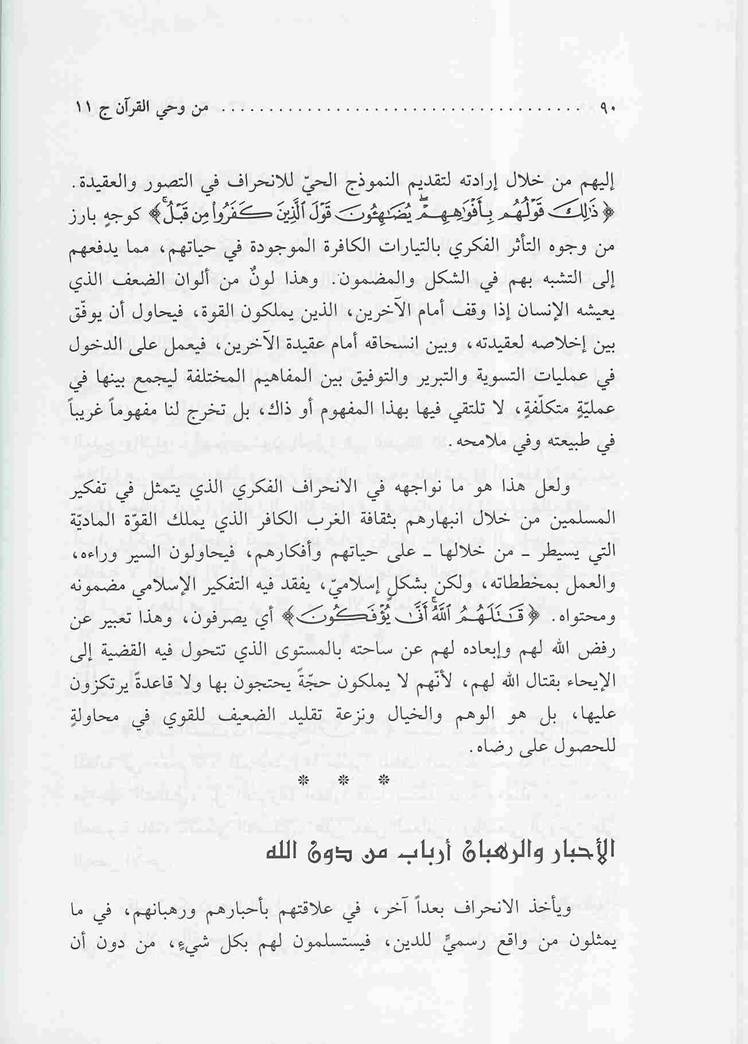 ٩٠ ........................................ من وحي القرآن ج ١١
إليهم من خلال إرادته لتقديم النموذج الحيّ للانحراف في التصور والعقيدة.
﴿ذَٰلِكَ قَوْلُهُم بِأَفْوَٰهِهِمْ ۖ يُضَٰهِـُٔونَ قَوْلَ ٱلَّذِينَ كَفَرُوا۟ مِن قَبْلُ ۚ﴾ كوجهٍ بارز
من وجوه التأثر الفكري بالتيارات الكافرة الموجودة في حياتهم، مما يدفعهم
إلى التشبه بهم في الشكل والمضمون. وهذا لونٌ من ألوان الضعف الذي
يعيشه الإنسان إذا وقف أمام الآخرين، الذين يملكون القوة، فيحاول أن يوفّق
بين إخلاصه لعقيدته، وبين انسحاقه أمام عقيدة الآخرين، فيعمل على الدخول
في عمليات التسوية والتبرير والتوفيق بين المفاهيم المختلفة ليجمع بينها في
عمليّةٍ متكلّفةٍ، لا تلتقي فيها بهذا المفهوم أو ذاك، بل تخرج لنا مفهوماً غريباً
في طبيعته وفي ملامحه.
ولعل هذا هو ما نواجهه في الانحراف الفكري الذي يتمثل في تفكير
المسلمين من خلال انبهارهم بثقافة الغرب الكافر الذي يملك القوّة الماديّة
التي يسيطر ـ من خلالها ـ على حياتهم وأفكارهم، فيحاولون السير وراءه،
والعمل بمخططاته، ولكن بشكلٍ إسلاميّ، يفقد فيه التفكير الإسلامي مضمونه
ومحتواه. ﴿قَٰتَلَهُمُ ٱللَّهُ ۚ أَنَّىٰ يُؤْفَكُونَ﴾ أي يصرفون، وهذا تعبير عن
رفض الله لهم وإبعاده لهم عن ساحته بالمستوى الذي تتحول فيه القضية إلى
الإيحاء بقتال الله لهم، لأنّهم لا يملكون حجّةً يحتجون بها ولا قاعدةً يرتكزون
عليها، بل هو الوهم والخيال ونزعة تقليد الضعيف للقوي في محاولةٍ
للحصول على رضاه.
* * *
الأحبار والرهبان أرباب من دون الله
ويأخذ الانحراف بعداً آخر، في علاقتهم بأحبارهم ورهبانهم، في ما
يمثلون من واقع رسميٍّ للدين، فيستسلمون لهم بكل شيءٍ، من دون أن